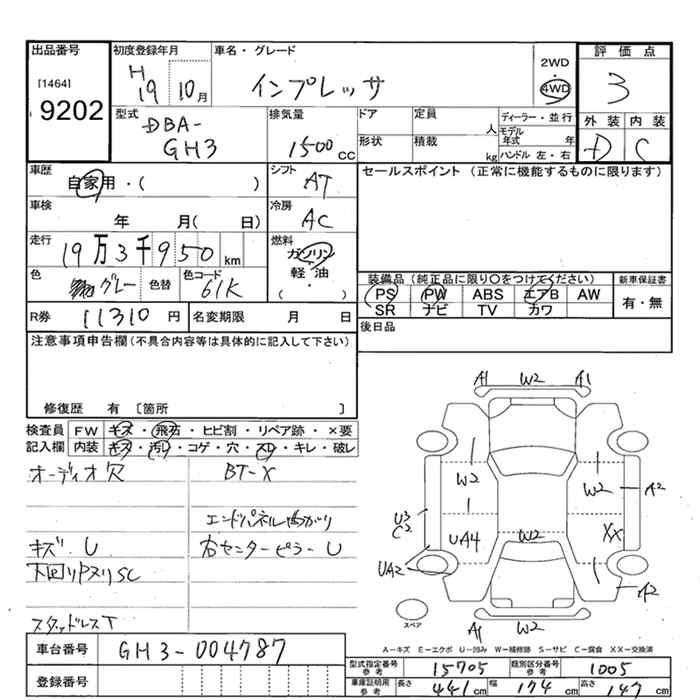 出品番号 初度登録年月 車名・グレード 評価点
[1464] 9202
H19 10月
インプレッサ
2WD
4WD
3
型式 DBA-GH3
排気量 1500 cc
ドア 定員 人
形状 積載 kg
ディーラー・並行
モデル年式 年
ハンドル 左・右
外装 内装
D C
車歴 自家用・( )
シフト AT
セールスポイント(正常に機能するものに限ります)
車検 年 月( 日)
冷房 AC
走行 19万3千950 km
燃料 ガソリン
軽油
・
( )
色 グレー 色替 色コード 61K
装備品(純正品に限り○をつけてください) 新車保証書
PS PW ABS エアB AW 有・無
SR ナビ TV カワ
R券 11310円 名変期限 月 日
後日品
注意事項申告欄(不具合内容等は具体的に記入して下さい)
修復歴 有 [箇所 ]
検査員 FW キズ・飛石・ヒビ割・リペア跡・×要
記入欄 内装 キズ・汚レ・コゲ・穴・スレ・キレ・破レ
オーディオ欠 BT-X
エンドパネル曲がり
キズ.U 右センターピラーU
下回りPヌリSC
スタッドレスT
A1 W2 A1
W2 W2 A2
U3
C2
UA4 W2 XX
UA2
A2
スペア
A1 W2
A-キズ E-エクボ U-凹み W-補修跡 S-サビ C-腐食 XX-交換済
車台番号 GH3-004787
型式指定番号 参考 15705 類別区分番号 参考 1005
登録番号
車庫証明用 参考 長さ 441cm 幅 174cm 高さ 147cm